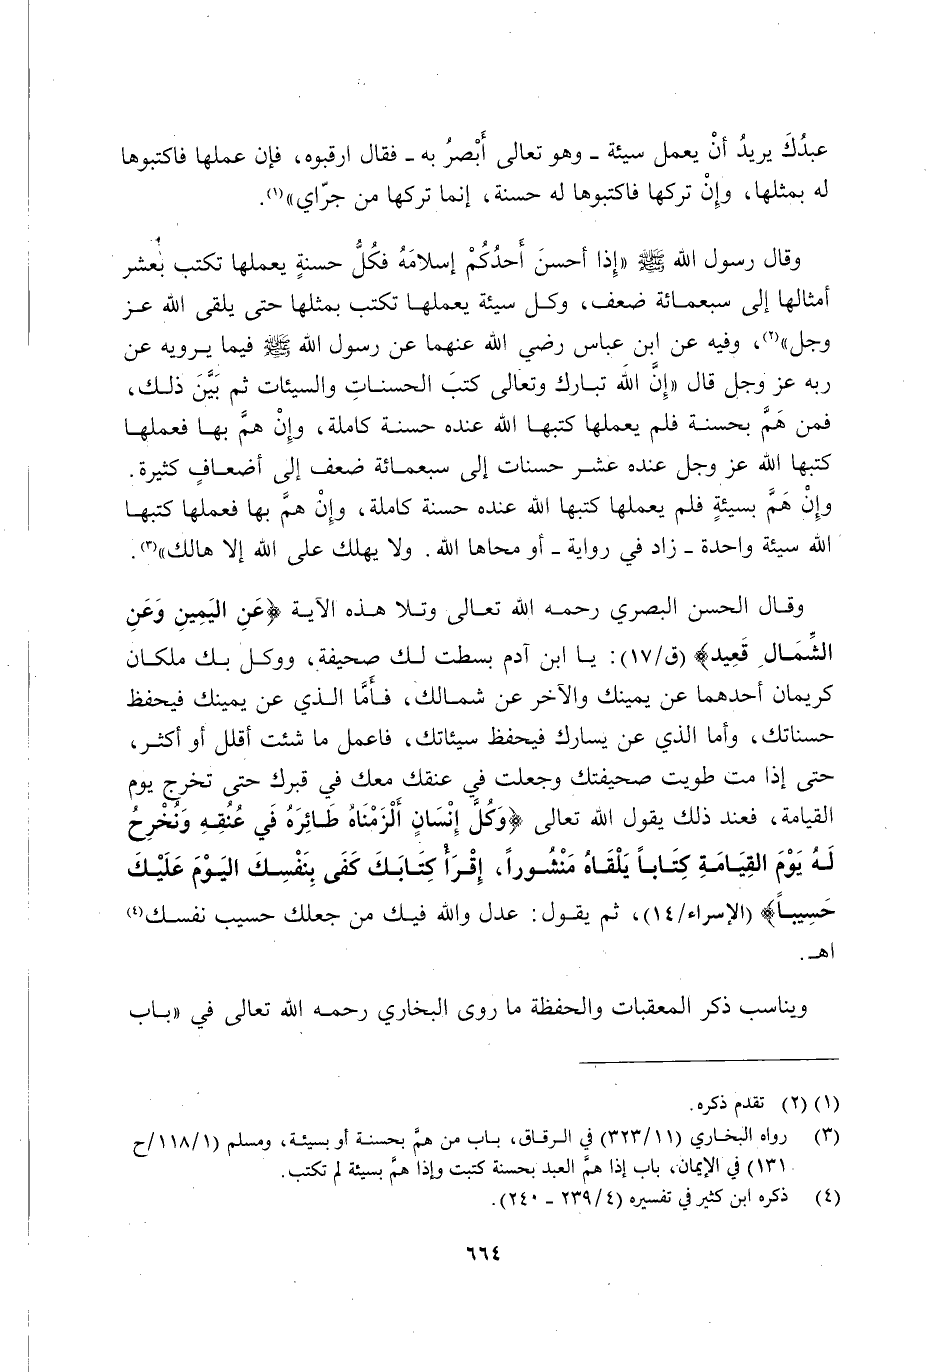 عبدُكَ يريدُ أنْ يعمل سيئة ـ وهو تعالى أَبْصرُ به ـ فقال ارقبوه، فإن عملها فاكتبوها
له بمثلها، وإِنْ تركها فاكتبوها له حسنة، إنما تركها من جرّاي»(١).
وقال رسول الله ﷺ «إِذا أحسنَ أَحدُكُمْ إسلامَهُ فكُلُّ حسنةٍ يعملها تكتب بُعشر
أمثالها إلى سبعمائة ضعف، وكل سيئة يعملها تكتب بمثلها حتى يلقى الله عز
وجل»(٢)، وفيه عن ابن عباس رضي الله عنهما عن رسول الله ﷺ فيما يرويه عن
ربه عز وجل قال «إنَّ اللَّه تبارك وتعالى كتبَ الحسناتِ والسيئات ثم بَيَّنَ ذلك،
فمن هَمَّ بحسنة فلم يعملها كتبها الله عنده حسنة كاملة، وإنْ همَّ بها فعملها
كتبها الله عز وجل عنده عشر حسنات إلى سبعمائة ضعف إلى أضعافٍ كثيرة.
وإنْ هَمَّ بسيئةٍ فلم يعملها كتبها الله عنده حسنة كاملة، وإنْ همَّ بها فعملها كتبها
الله سيئة واحدة ـ زاد في رواية ـ أو محاها الله. ولا يهلك على الله إلا هالك»(٣).
وقال الحسن البصري رحمه الله تعالى وتلا هذه الآية ﴿عَنِ اليَمِينِ وَعَنِ
الشِّمَالِ قَعِيد﴾ (ق/١٧): يا ابن آدم بسطت لك صحيفة، ووكل بك ملكان
كريمان أحدهما عن يمينك والآخر عن شمالك، فأمَّا الذي عن يمينك فيحفظ
حسناتك، وأما الذي عن يسارك فيحفظ سيئاتك، فاعمل ما شئت أقلل أو أكثر،
حتى إذا مت طويت صحيفتك وجعلت في عنقك معك في قبرك حتى تخرج يوم
القيامة، فعند ذلك يقول الله تعالى ﴿وَكُلَّ إِنْسَانٍ أَلْزَمْنَاهُ طَائِرَهُ فَي عُنُقِهِ وَنُخْرِجُ
لَهُ يَوْمَ القِيَامَةِ كِتَاباً يَلْقَاهُ مَنْشُوراً، إِقْرَأْ كِتَابَكَ كَفَى بِنَفْسِكَ اليَوْمَ عَلَيْكَ
حَسِيباً﴾ (الإسراء/١٤)، ثم يقول: عدل والله فيك من جعلك حسيب نفسك(٤)
اهـ.
ويناسب ذكر المعقبات والحفظة ما روى البخاري رحمه الله تعالى في «باب
(١) (٢) تقدم ذكره.
(٣) رواه البخاري (٣٢٣/١١) في الرقاق، باب من همَّ بحسنة أو بسيئة، ومسلم (١١٨/١/ح
١٣١) في الإيمان، باب إذا همَّ العبد بحسنة كتبت وإذا همَّ بسيئة لم تكتب.
(٤) ذكره ابن كثير في تفسيره (٤/ ٢٣٩ ـ ٢٤٠).
٦٦٤